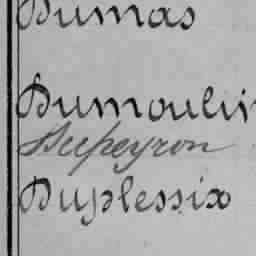 Dumas
Dumoulin
Dupeyron
Duplessix